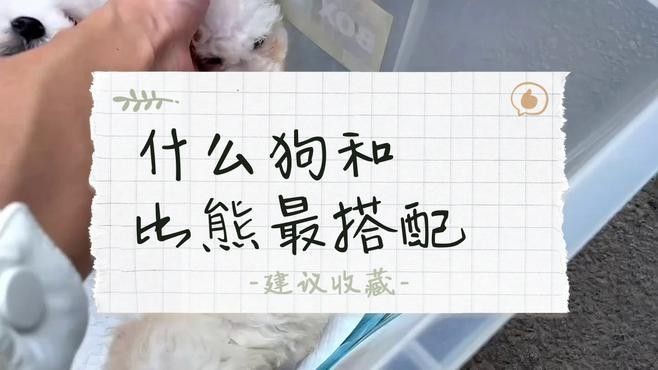 BOX
什么狗和
比熊最搭配
-建议收藏-